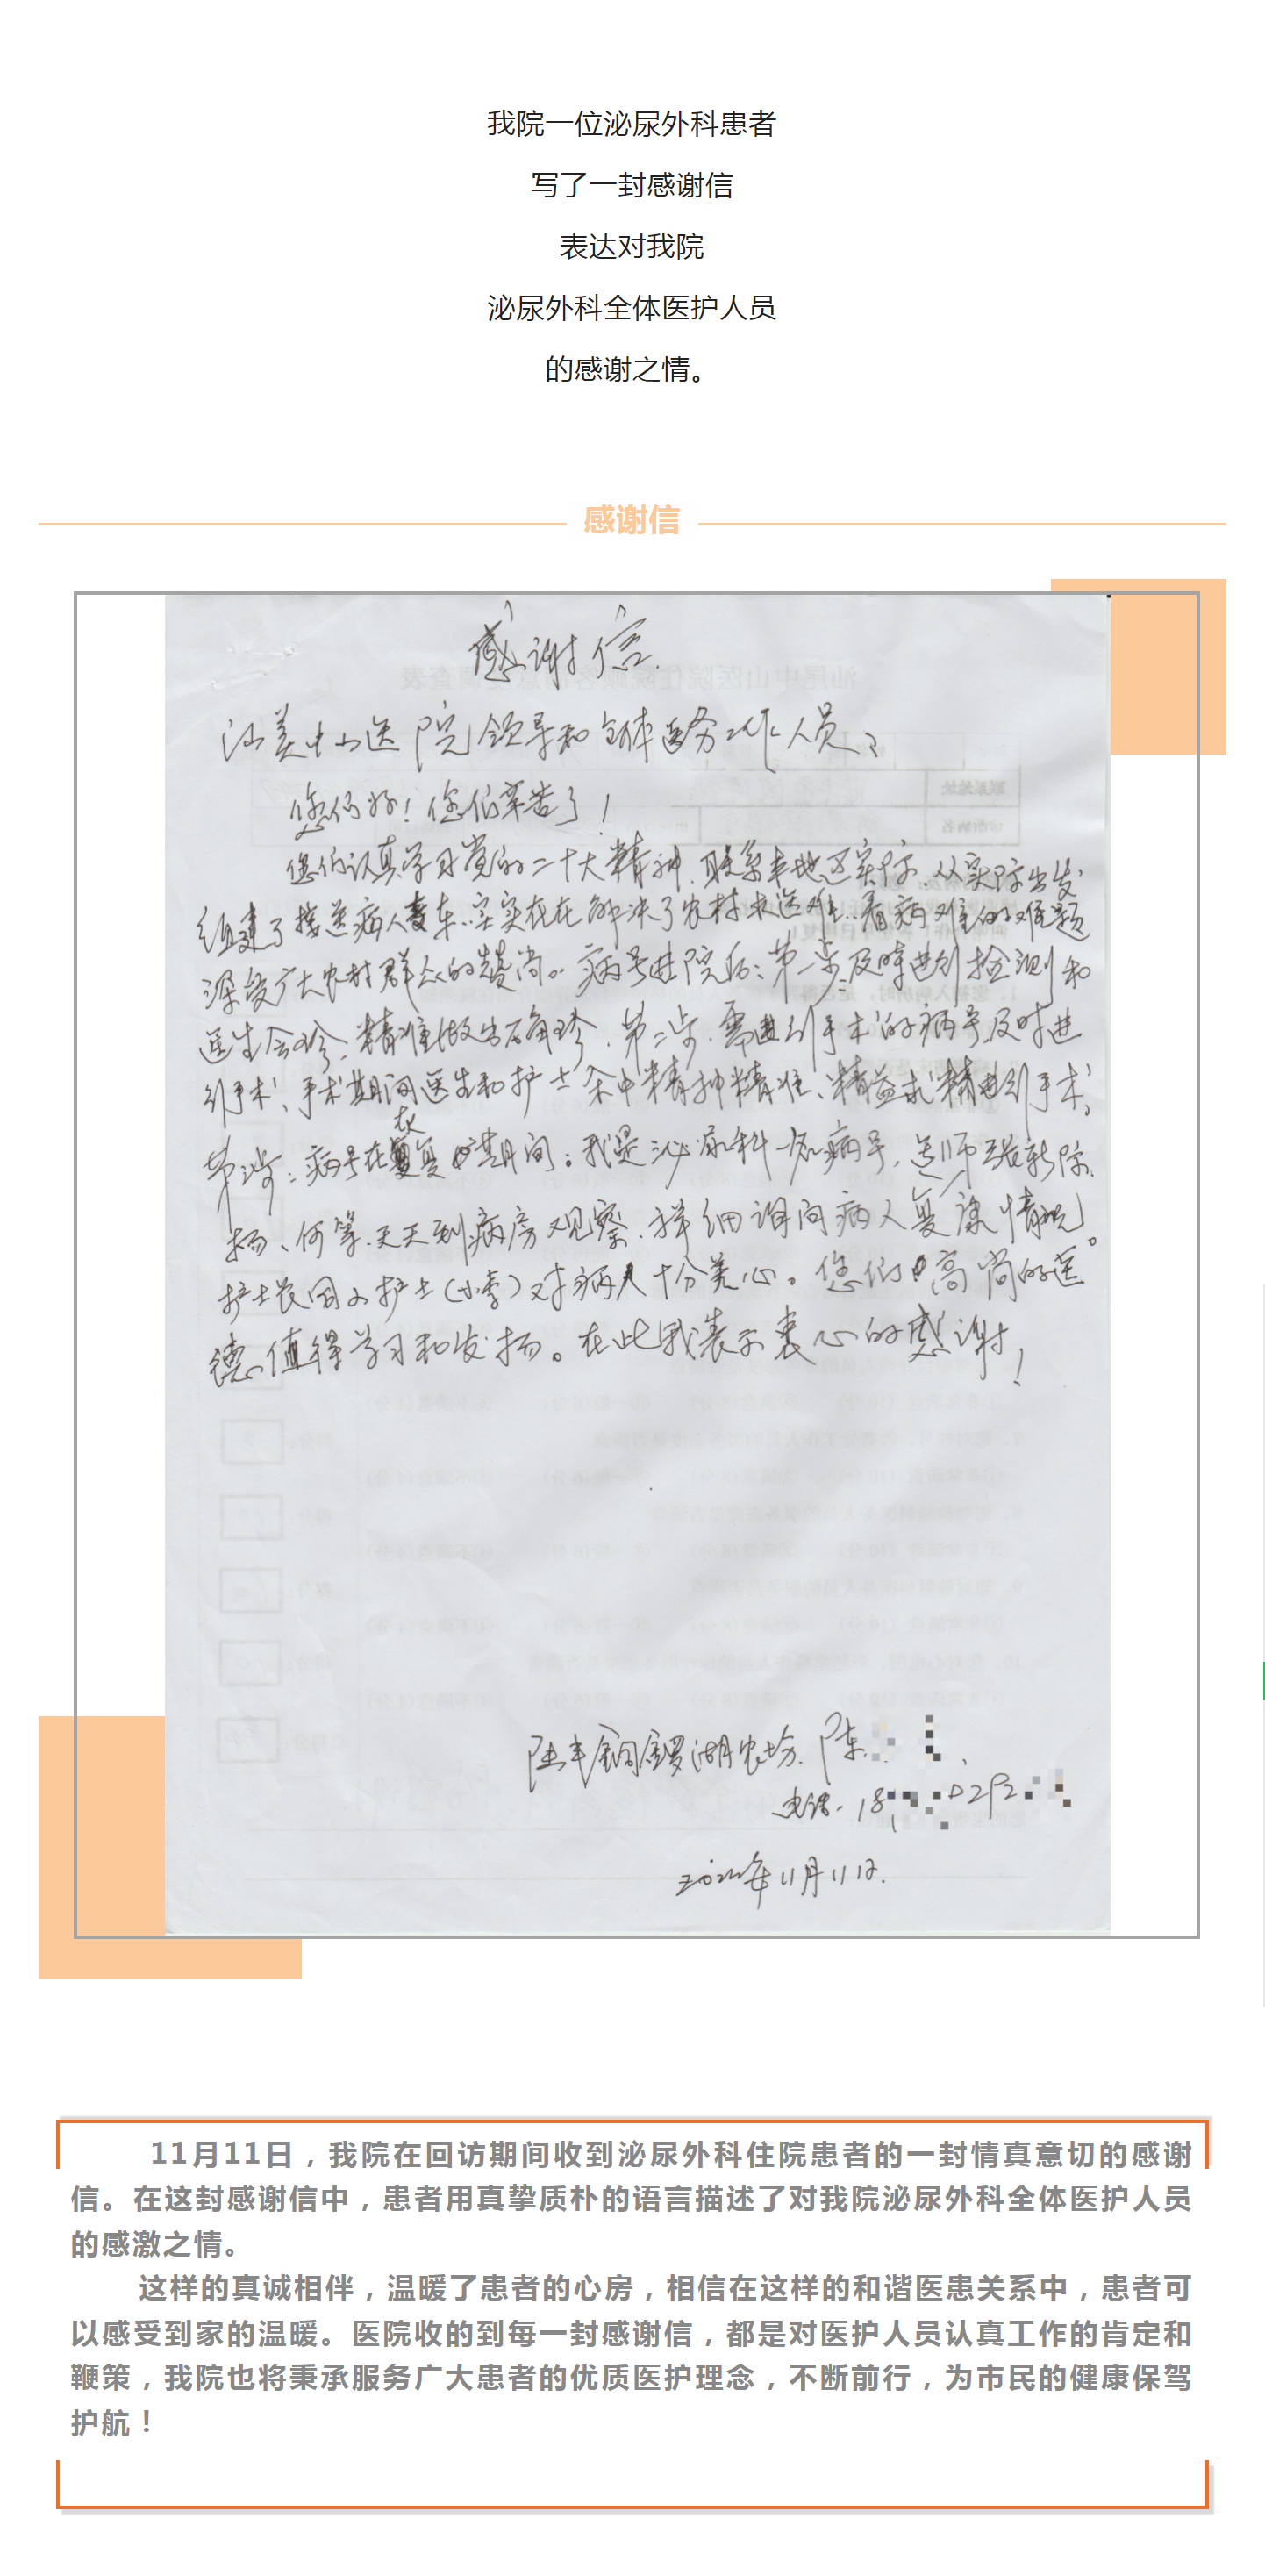 我院一位泌尿外科患者
写了一封感谢信
表达对我院
泌尿外科全体医护人员
的感谢之情。
感谢信
感谢信
汕美中山医院领导和全体医务工作人员：
您们好！您们辛苦了！
您们认真学习党的二十大精神，联系本地区实际，从实际出发，
组建了接送病人专车，实实在在解决了农村求医难、看病难的难题
深受广大农村群众的赞尚。病号进院后：第一步：及时进行检测和
医生会诊、精准做出确诊，第二步，需进行手术的病号及时进
行手术、手术期间医生和护士集中精神精准、精益求精进行手术。
第三步：病号在恢复期间。我是泌尿科一名病号，医师
杨、何等天天到病房观察，详细询问病人复康情况。
护士长周及护士（小李）对病人十分关心。您们高尚的医
德值得学习和发扬。在此我表示衷心的感谢！
陆丰铜锣湖农场 陈
电话：18
2022年11月11日.
11月11日，我院在回访期间收到泌尿外科住院患者的一封情真意切的感谢
信。在这封感谢信中，患者用真挚质朴的语言描述了对我院泌尿外科全体医护人员
的感激之情。
这样的真诚相伴，温暖了患者的心房，相信在这样的和谐医患关系中，患者可
以感受到家的温暖。医院收的到每一封感谢信，都是对医护人员认真工作的肯定和
鞭策，我院也将秉承服务广大患者的优质医护理念，不断前行，为市民的健康保驾
护航！